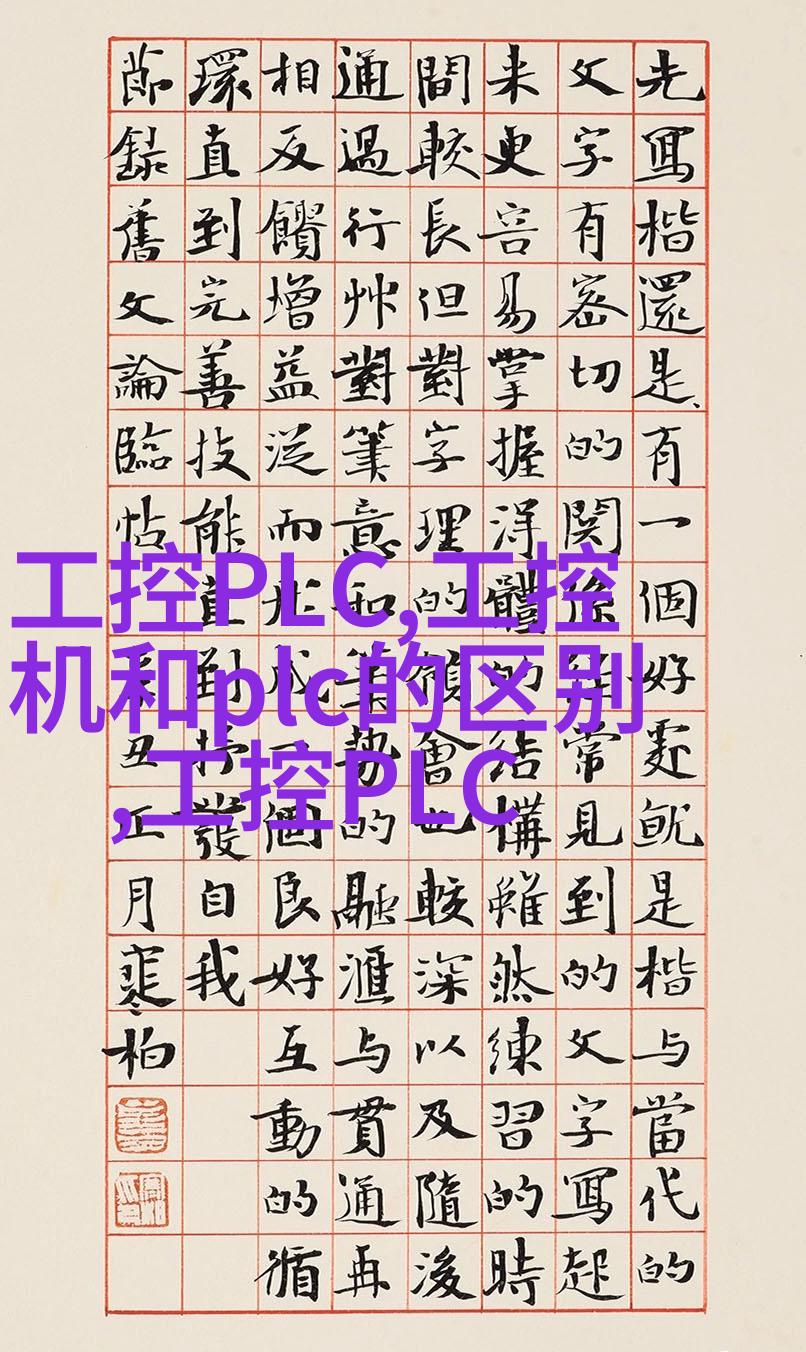 先寫楷還是、有一個好處就是楷与當代的
文字有密切的関係經常見到的文字寫起
来更容易掌握淂體的结構雖然練習的時
間較長但對字理的領會也較深以及隨後
通過行艸對筆意和筆勢的融滙与貫通再
相反饋增益從而形成一個良好互動的循
環直到完善技能直到抒發自我
節録舊文論臨帖丑月柏
工控PLC,工控
机和plc的区别
,工控PLC